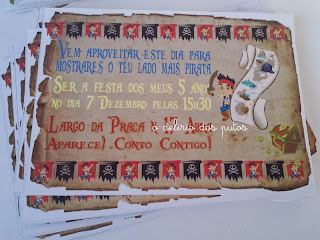 Vem aproveitar este dia para
mostrares o teu lado mais pirata
Ser a festa dos meus 5 ano
no dia 7 Dezembro pelas 15h30
Largo da Praça
o delirio dos putos
Aparece! Conto Contigo!